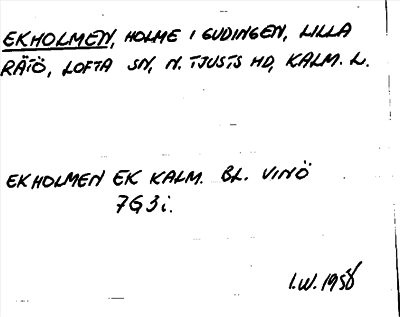 EKHOLMEN, HOLME I GUDINGEN, LILLA
RÄTÖ, LOFTA SN, N. TJUSTS HD, KALM. L.
EKHOLMEN EK KALM. BL. VINÖ
7G3i.
I.W. 1958